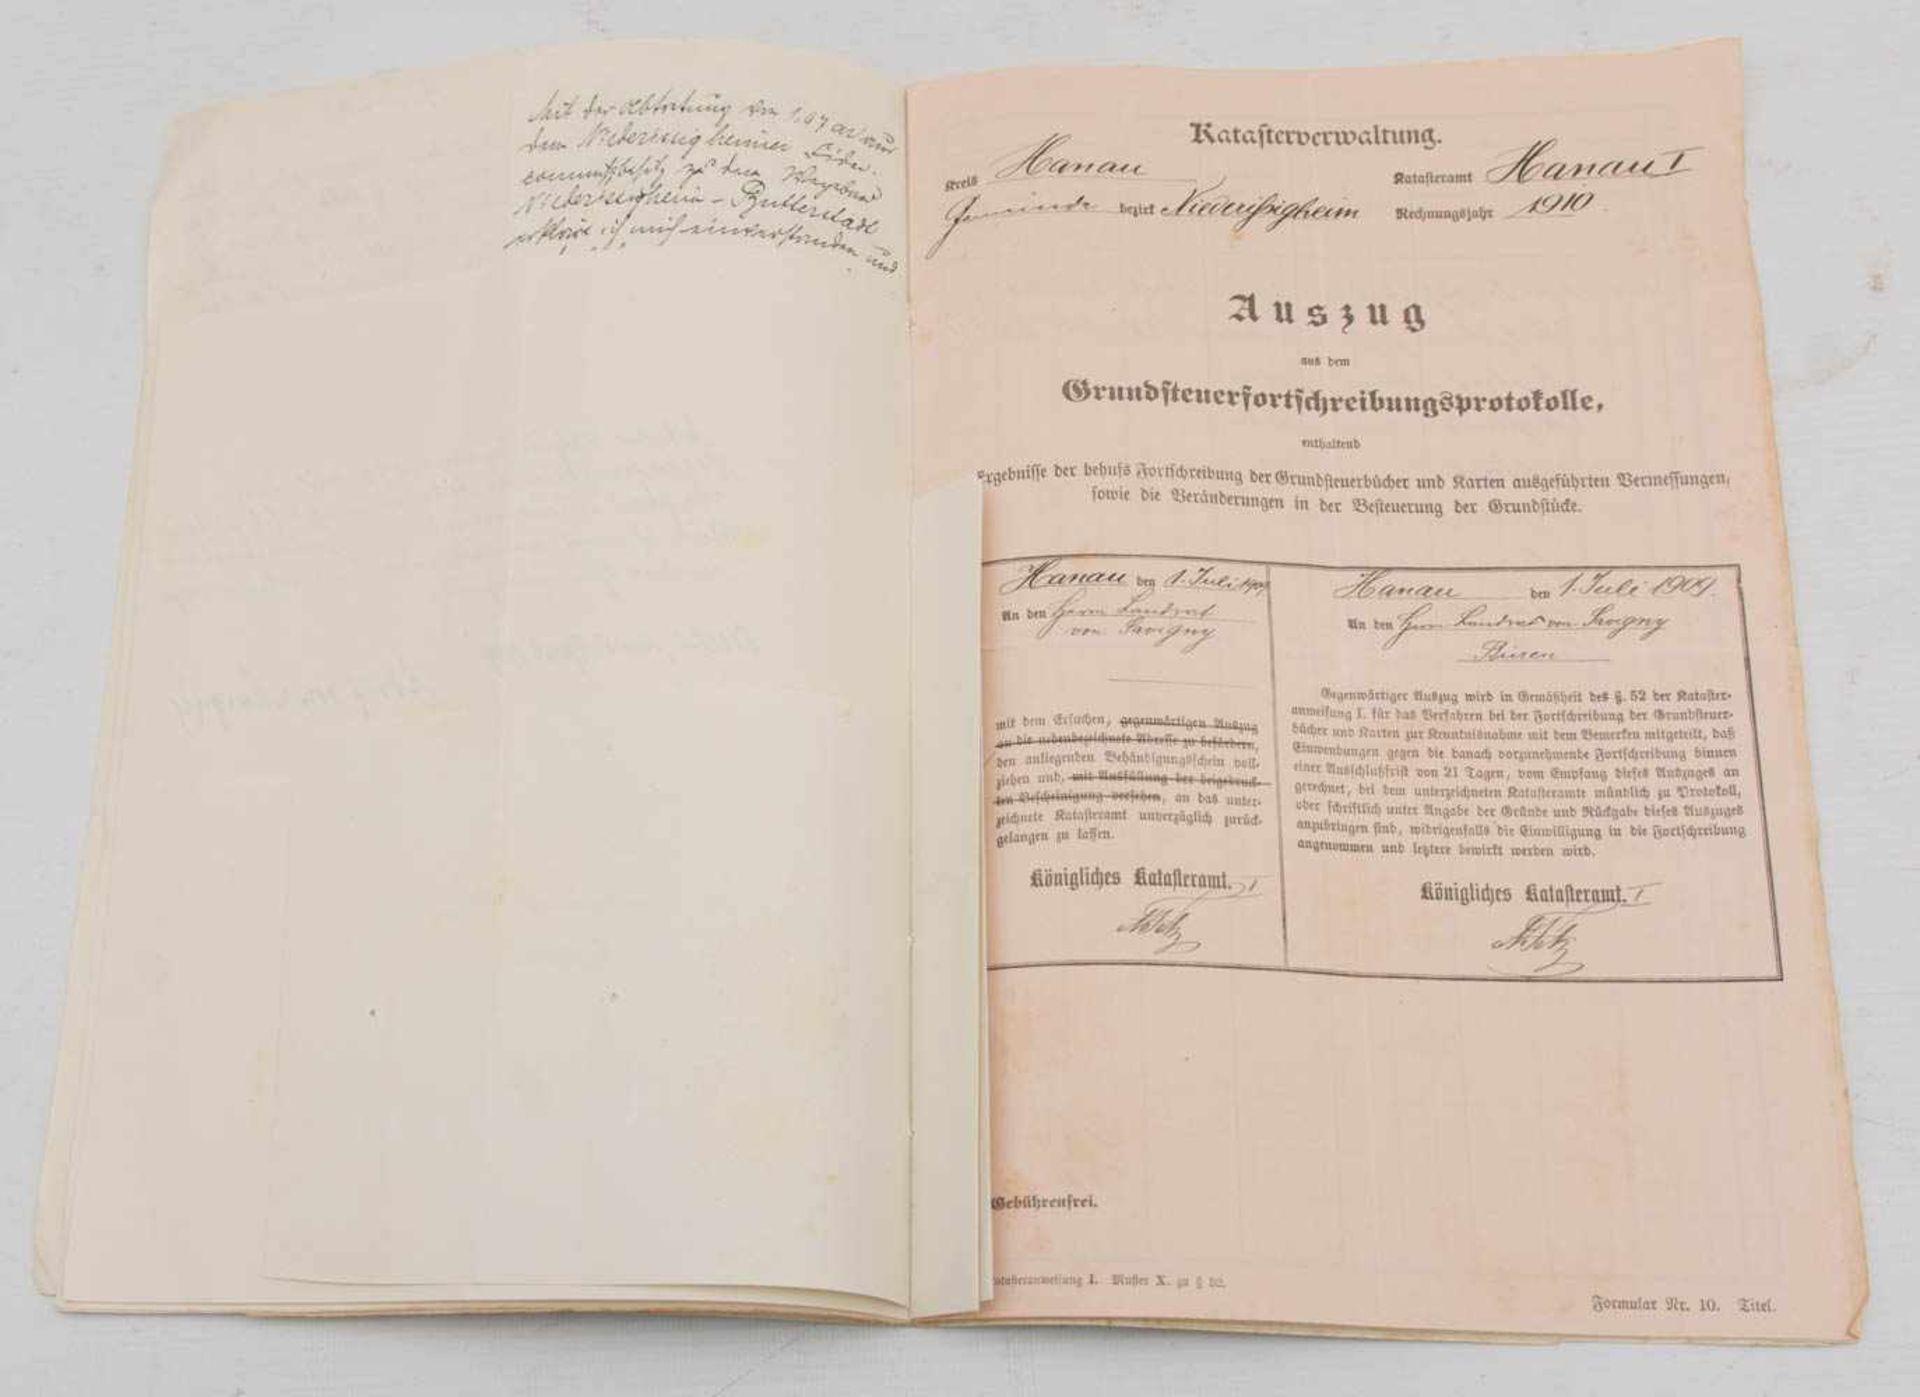 Mit der Abtretung von 1,07 ar aus
dem Niederissigheimer Fidei-
commißbesitz zu dem
Niederissigheim - Butterstadt
erkläre ich mich einverstanden und
Katasterverwaltung.
Kreis Hanau Katasteramt Hanau I
Gemeindebezirk Niederissigheim Rechnungsjahr 1910
Auszug
aus dem
Grundsteuerfortschreibungsprotokolle,
enthaltend
Ergebnisse der behufs Fortschreibung der Grundsteuerbücher und Karten ausgeführten Vermessungen,
sowie die Veränderungen in der Besteuerung der Grundstücke.
Hanau den 1. Juli 1909
An den Herrn Landrat
von Savigny
mit dem Ersuchen, gegenwärtigen Auszug
an die nebenbezeichnete Adresse zu befördern,
den anliegenden Behändigungsschein voll-
ziehen und, mit Ausfüllung der beigedruck-
ten Bescheinigung versehen, an das unter-
zeichnete Katasteramt unverzüglich zurück-
gelangen zu lassen.
Königliches Katasteramt. I
Hanau den 1. Juli 1909.
An den Herrn Landrat von Savigny
Büren
Gegenwärtiger Auszug wird in Gemäßheit des §. 52 der Kataster-
anweisung I. für das Verfahren bei der Fortschreibung der Grundsteuer-
bücher und Karten zur Kenntnisnahme mit dem Bemerken mitgeteilt, daß
Einwendungen gegen die danach vorzunehmende Fortschreibung binnen
einer Ausschlußfrist von 21 Tagen, vom Empfang dieses Auszuges an
gerechnet, bei dem unterzeichneten Katasteramte mündlich zu Protokoll,
oder schriftlich unter Angabe der Gründe und Rückgabe dieses Auszuges
anzubringen sind, widrigenfalls die Einwilligung in die Fortschreibung
angenommen und letztere bewirkt werden wird.
Königliches Katasteramt. I
Gebührenfrei.
Katasteranweisung I. Muster X. zu § 52.
Formular Nr. 10. Titel.